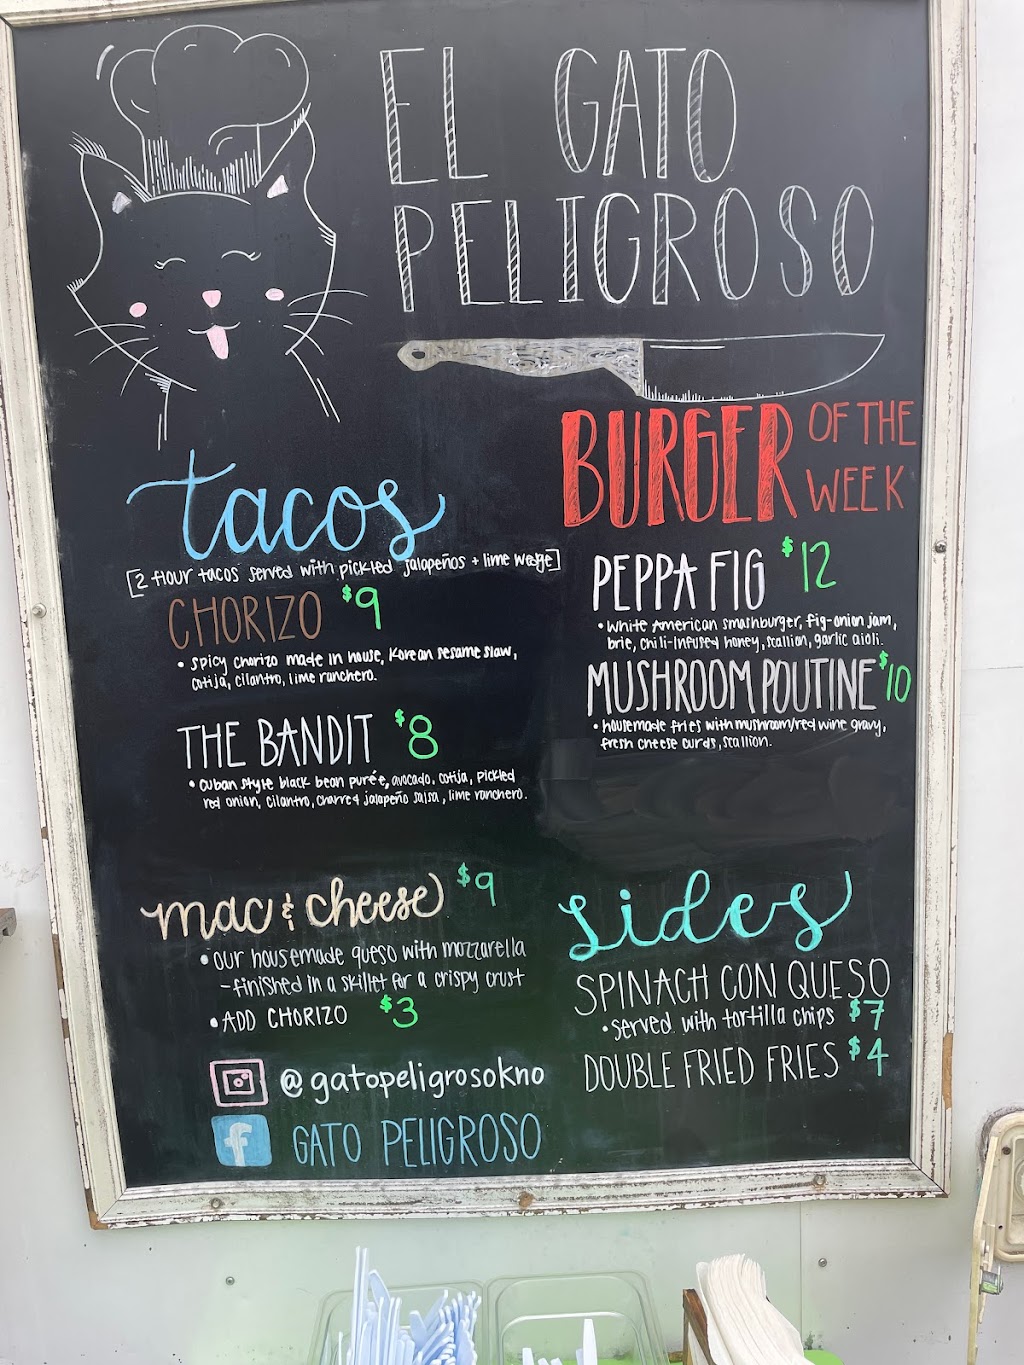 EL GATO
PELIGROSO
tacos
[2 flour tacos served with pickled jalapeños + lime wedge]
CHORIZO $9
• spicy chorizo made in house, Korean sesame slaw,
cotija, cilantro, lime ranchero.
THE BANDIT $8
• Cuban style black bean purée, avocado, cotija, pickled
red onion, cilantro, charred jalapeño salsa, lime ranchero.
mac & cheese $9
• our housemade queso with mozzarella
- finished in a skillet for a crispy crust
• ADD CHORIZO $3
@gatopeligrosokno
f GATO PELIGROSO
BURGER OF THE
WEEK
PEPPA FIG $12
• White American smashburger, fig-onion jam,
brie, chili-infused honey, scallion, garlic aioli.
MUSHROOM POUTINE $10
• housemade fries with mushroom/red wine gravy,
fresh cheese curds, scallion.
sides
SPINACH CON QUESO
• served with tortilla chips $7
DOUBLE FRIED FRIES $4